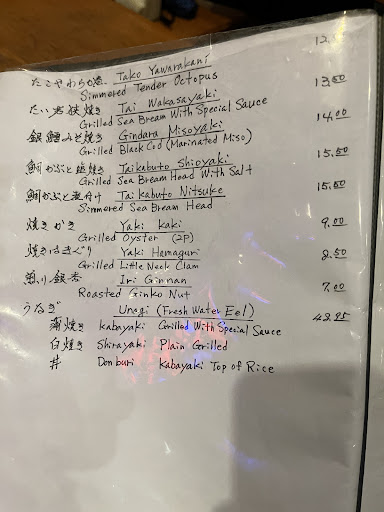 たこやわらか煮 Tako Yawarakani 12.
Simmered Tender Octopus
たい若狭焼き Tai Wakasayaki 13.50
Grilled Sea Bream With Special Sauce
銀鱈みそ焼き Gindara Misoyaki 14.00
Grilled Black Cod (Marinated Miso)
鯛かぶと塩焼き Taikabuto Shioyaki 15.50
Grilled Sea Bream Head With Salt
鯛かぶと煮付け Taikabuto Nitsuke 15.50
Simmered Sea Bream Head
焼きかき Yaki kaki 9.00
Grilled Oyster (2P)
焼きはまぐり Yaki Hamaguri 8.50
Grilled Little Neck Clam
煎り銀杏 Iri Ginnan 7.00
Roasted Ginko Nut
うなぎ Unagi (Fresh Water Eel) 42.95
蒲焼き kabayaki Grilled With Special Sauce
白焼き Shirayaki Plain Grilled
丼 Donburi kabayaki Top of Rice